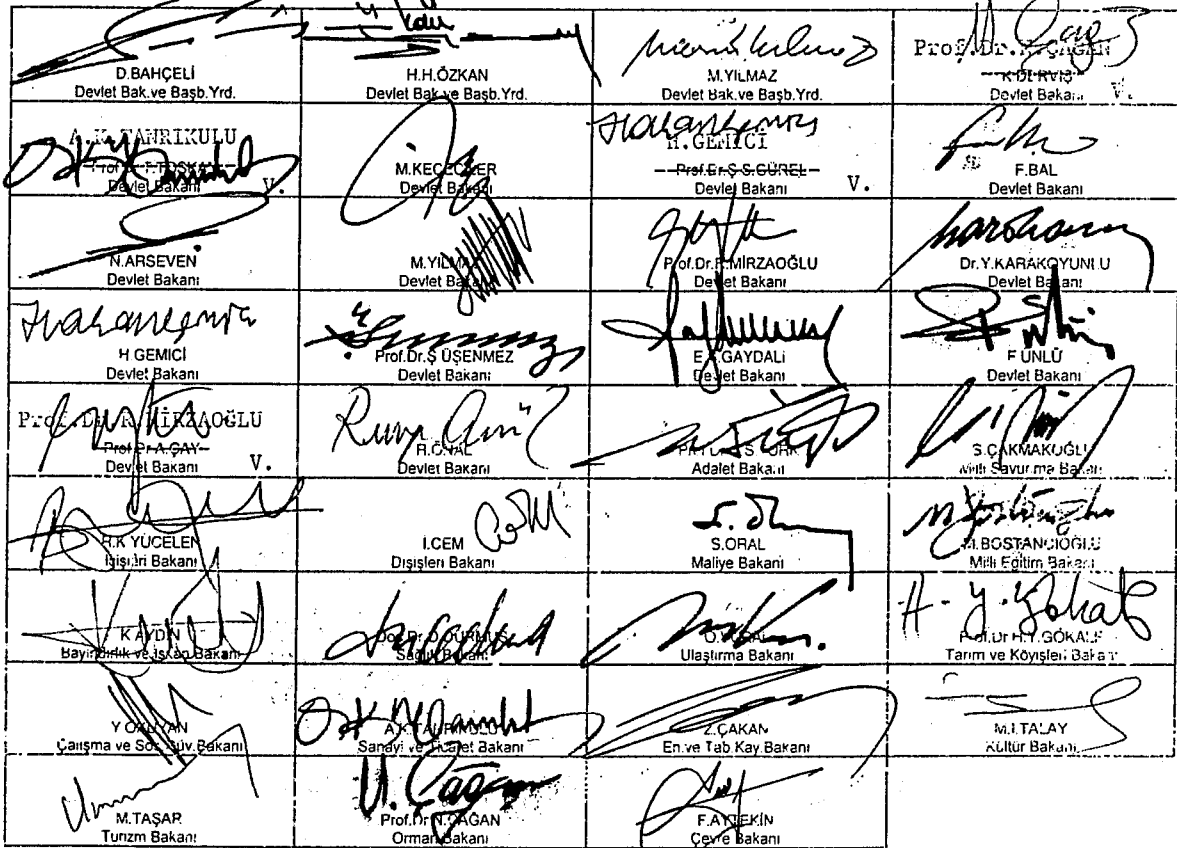 D.BAHÇELİ
Devlet Bak.ve Başb.Yrd.
H.H.ÖZKAN
Devlet Bak.ve Başb.Yrd.
M.YILMAZ
Devlet Bak.ve Başb.Yrd.
Prof.Dr.N.ÇAĞAN
K.DERVİŞ
Devlet Bakanı V.
A.K.TANRIKULU
Devlet Bakanı V.
M.KEÇECİLER
Devlet Bakanı
H.GEMİCİ
Prof.Dr.Ş.S.GÜREL
Devlet Bakanı V.
F.BAL
Devlet Bakanı
N.ARSEVEN
Devlet Bakanı
M.YILMAZ
Devlet Bakanı
Prof.Dr.R.MİRZAOĞLU
Devlet Bakanı
Dr.Y.KARAKOYUNLU
Devlet Bakanı
H.GEMİCİ
Devlet Bakanı
Prof.Dr.Ş ÜŞENMEZ
Devlet Bakanı
E.S.GAYDALI
Devlet Bakanı
F.ÜNLÜ
Devlet Bakanı
Prof.Dr.R.MİRZAOĞLU
Prof.Dr.A.ÇAY
Devlet Bakanı V.
R.ÖNAL
Devlet Bakanı
TÜRK
Adalet Bakanı
S.ÇAKMAKOĞLU
Milli Savunma Bakanı
R.K.YÜCELEN
İçişleri Bakanı
İ.CEM
Dışişleri Bakanı
S.ORAL
Maliye Bakanı
M.BOSTANCIOĞLU
Milli Eğitim Bakanı
K.AYDIN
Bayındırlık ve İskan Bakanı
Doç.Dr.O.DURMUŞ
Sağlık Bakanı
Ulaştırma Bakanı
Prof.Dr.H.Y.GÖKALP
Tarım ve Köyişleri Bakanı
Y.OKUYAN
Çalışma ve Sos.Güv.Bakanı
A.K.TANRIKULU
Sanayi ve Ticaret Bakanı
Z.ÇAKAN
En.ve Tab.Kay.Bakanı
M.İ.TALAY
Kültür Bakanı
M.TAŞAR
Turizm Bakanı
Prof.Dr.N.ÇAĞAN
Orman Bakanı
F.AYTEKİN
Çevre Bakanı